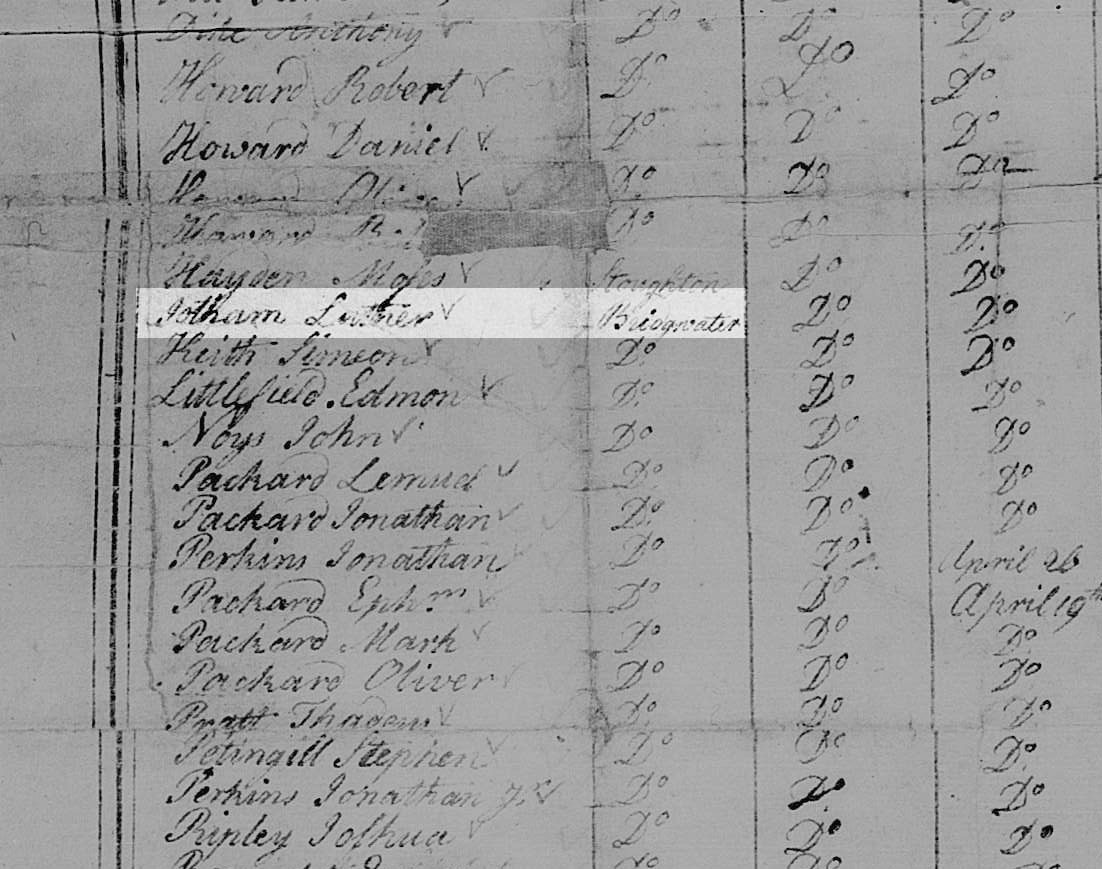 Dike Anthony Do Do Do
Howard Robert Do Do Do
Howard Daniel Do Do Do
Howard Oliver Do Do Do
Howard Do Do Do
Hayden Moses Stoughton Do Do
Jotham Luther Bridgwater Do Do
Keith Simeon Do Do Do
Littlefield Edmon Do Do Do
Noys John Do Do Do
Packard Lemuel Do Do Do
Packard Jonathan Do Do Do
Perkins Jonathan Do Do April 26
Packard Ephm Do Do April 19th
Packard Mark Do Do Do
Packard Oliver Do Do Do
Pratt Thadeus Do Do Do
Petingill Stephen Do Do Do
Perkins Jonathan Jr Do Do Do
Ripley Joshua Do Do Do